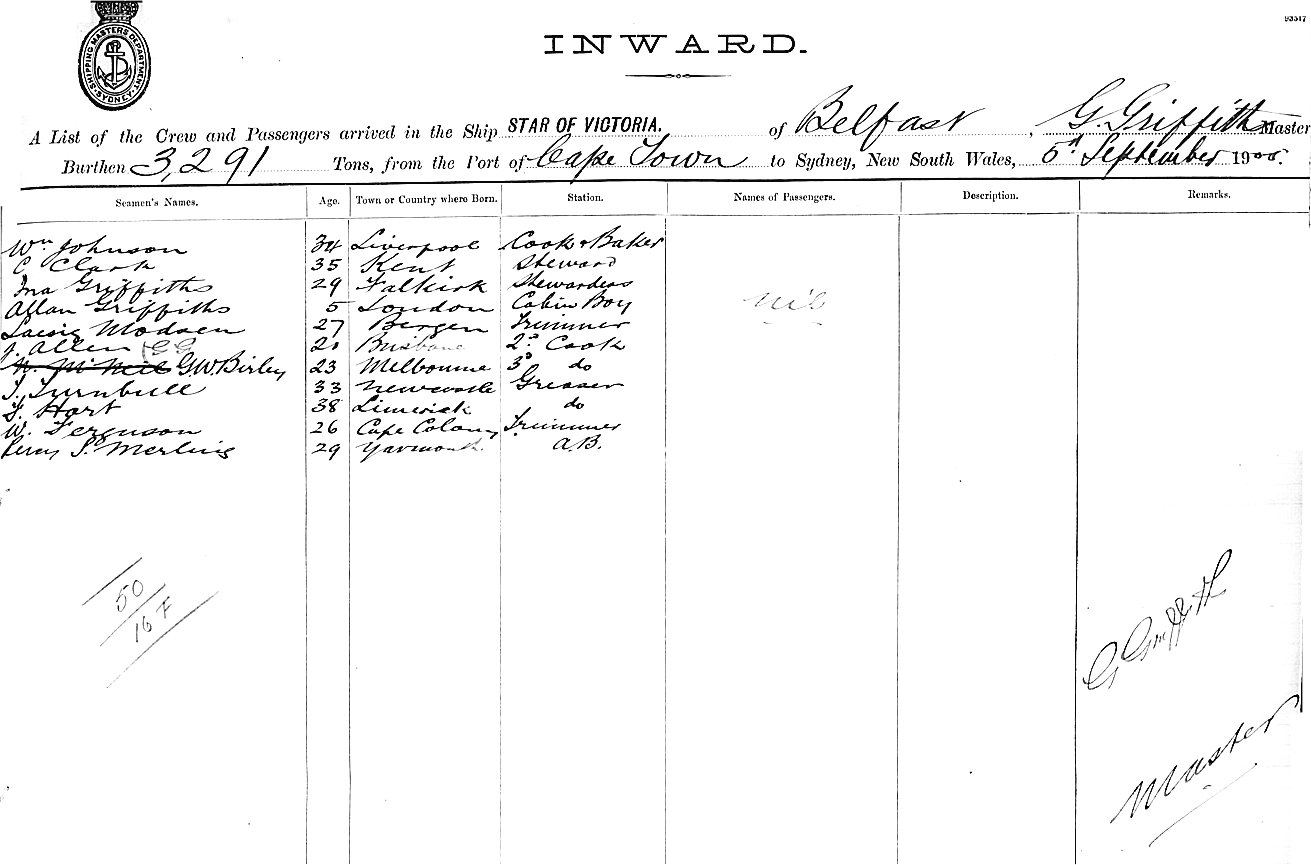 93517
SHIPPING MASTERS DEPARTMENT SYDNEY
INWARD.
A List of the Crew and Passengers arrived in the Ship STAR OF VICTORIA, of Belfast, G. Griffith Master
Burthen 3,291 Tons, from the Port of Cape Town to Sydney, New South Wales, 5th September 1900.
Seamen's Names. Age. Town or Country where Born. Station. Names of Passengers. Description. Remarks.
Wm Johnson 34 Liverpool Cook & Baker
C Clark 35 Kent Steward
Ina Griffiths 29 Falkirk Stewardess
Allan Griffiths 5 London Cabin Boy nil
Modsen 27 Bergen Trimmer
J. Allen GG 21 Brisbane 2d Cook
N. McNeil G.W. Birley 23 Melbourne 3d do
T. Turnbull 33 Newcastle Greaser
T. Hart 38 Limerick do
W. Ferguson 26 Cape Colony Trimmer
Percy S. Merling 29 Yarmouth A.B.
50
16 F
G Griffith
Master